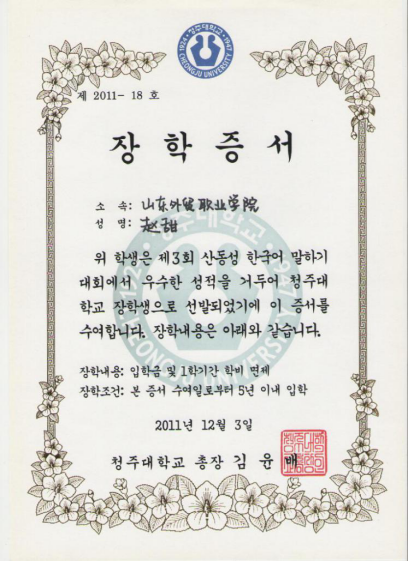 청주대학교
1924 · 1947
CHEONGJU UNIVERSITY
제 2011- 18 호
장 학 증 서
소 속: 山东外贸职业学院
성 명: 赵甜
위 학생은 제3회 산동성 한국어 말하기
대회에서 우수한 성적을 거두어 청주대
학교 장학생으로 선발되었기에 이 증서를
수여합니다. 장학내용은 아래와 같습니다.
장학내용: 입학금 및 1학기간 학비 면제
장학조건: 본 증서 수여일로부터 5년 이내 입학
2011년 12월 3일
청주대학교 총장 김 윤 배